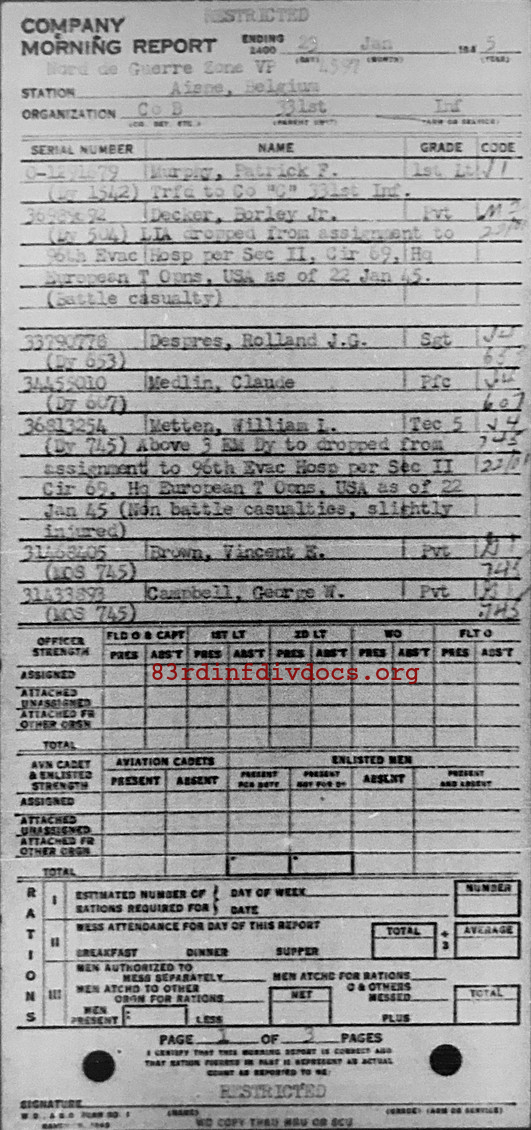 RESTRICTED
COMPANY
MORNING REPORT ENDING 2400 23 Jan 194 5
(DAY) (MONTH) (YEAR)
Nord de Guerre Zone VP 4597
STATION Aisne, Belgium
ORGANIZATION Co B 331st Inf
(CO. DET. ETC.) (PARENT UNIT) (ARM OR SERVICE)
SERIAL NUMBER NAME GRADE CODE
Murphy, Patrick F. 1st Lt
(Dy 1542) Trfd to Co "C" 331st Inf.
Decker, Borley Jr. Pvt
(Dy 504) LIA dropped from assignment to
96th Evac Hosp per Sec II, Cir 69, Hq
European T Opns, USA as of 22 Jan 45.
(Battle casualty)
33790778 Despres, Rolland J.G. Sgt
(Dy 653)
34455010 Medlin, Claude Pfc
(Dy 607) 607
36813254 Metten, William L. Tec 5
(Dy 745) Above 3 EM Dy to dropped from 745
assignment to 96th Evac Hosp per Sec II
Cir 69, Hq European T Opns, USA as of 22
Jan 45 (Non battle casualties, slightly
injured)
31468405 Brown, Vincent E. Pvt
(MOS 745) 745
31433893 Campbell, George W. Pvt
(MOS 745) 745
OFFICER STRENGTH FLD O & CAPT 1ST LT 2D LT WO FLT O
PRES ABS'T PRES ABS'T PRES ABS'T PRES ABS'T PRES ABS'T
ASSIGNED
83rdinfdivdocs.org
ATTACHED UNASSIGNED
ATTACHED FR OTHER ORGN
TOTAL
AVN CADET & ENLISTED STRENGTH AVIATION CADETS ENLISTED MEN
PRESENT ABSENT PRESENT FOR DUTY PRESENT NOT FOR DY ABSENT PRESENT AND ABSENT
ASSIGNED
ATTACHED UNASSIGNED
ATTACHED FR OTHER ORGN
TOTAL
RATIONS
I ESTIMATED NUMBER OF RATIONS REQUIRED FOR DAY OF WEEK DATE NUMBER
II MESS ATTENDANCE FOR DAY OF THIS REPORT TOTAL ÷ 3 AVERAGE
BREAKFAST DINNER SUPPER
III MEN AUTHORIZED TO MESS SEPARATELY MEN ATCHD FOR RATIONS
MEN ATCHD TO OTHER ORGN FOR RATIONS NET O & OTHERS MESSED TOTAL
MEN PRESENT LESS PLUS
PAGE 1 OF 3 PAGES
I CERTIFY THAT THIS MORNING REPORT IS CORRECT AND
THAT RATION FIGURES IN PART III REPRESENT AN ACTUAL
COUNT AS REPORTED TO ME:
RESTRICTED
SIGNATURE
(NAME) (GRADE) (ARM OR SERVICE)
W D , A G O FORM NO. 1
NO COPY THRU MRU OR SCU